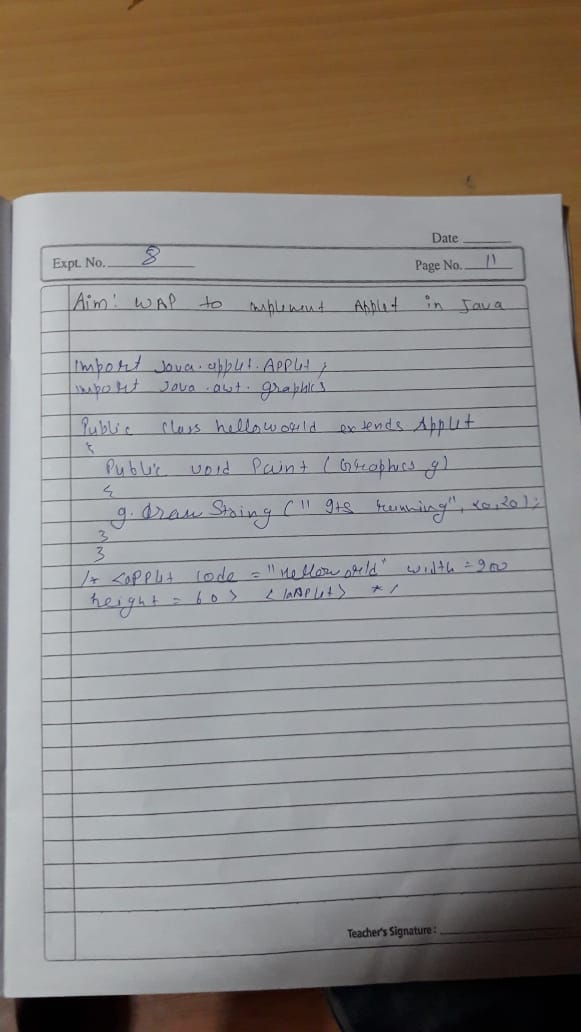 Date
Expt. No. 8
Page No. 11
Aim: WAP to implement Applet in Java
import java.applet.Applet;
import java.awt.graphics
Public class helloworld extends Applet
{
Public void Paint (Graphics g)
{
g.drawString ("Its running", 20,20);
}
}
/* <applet code = "Helloworld" width = 200
height = 60> </applet> */
Teacher's Signature: